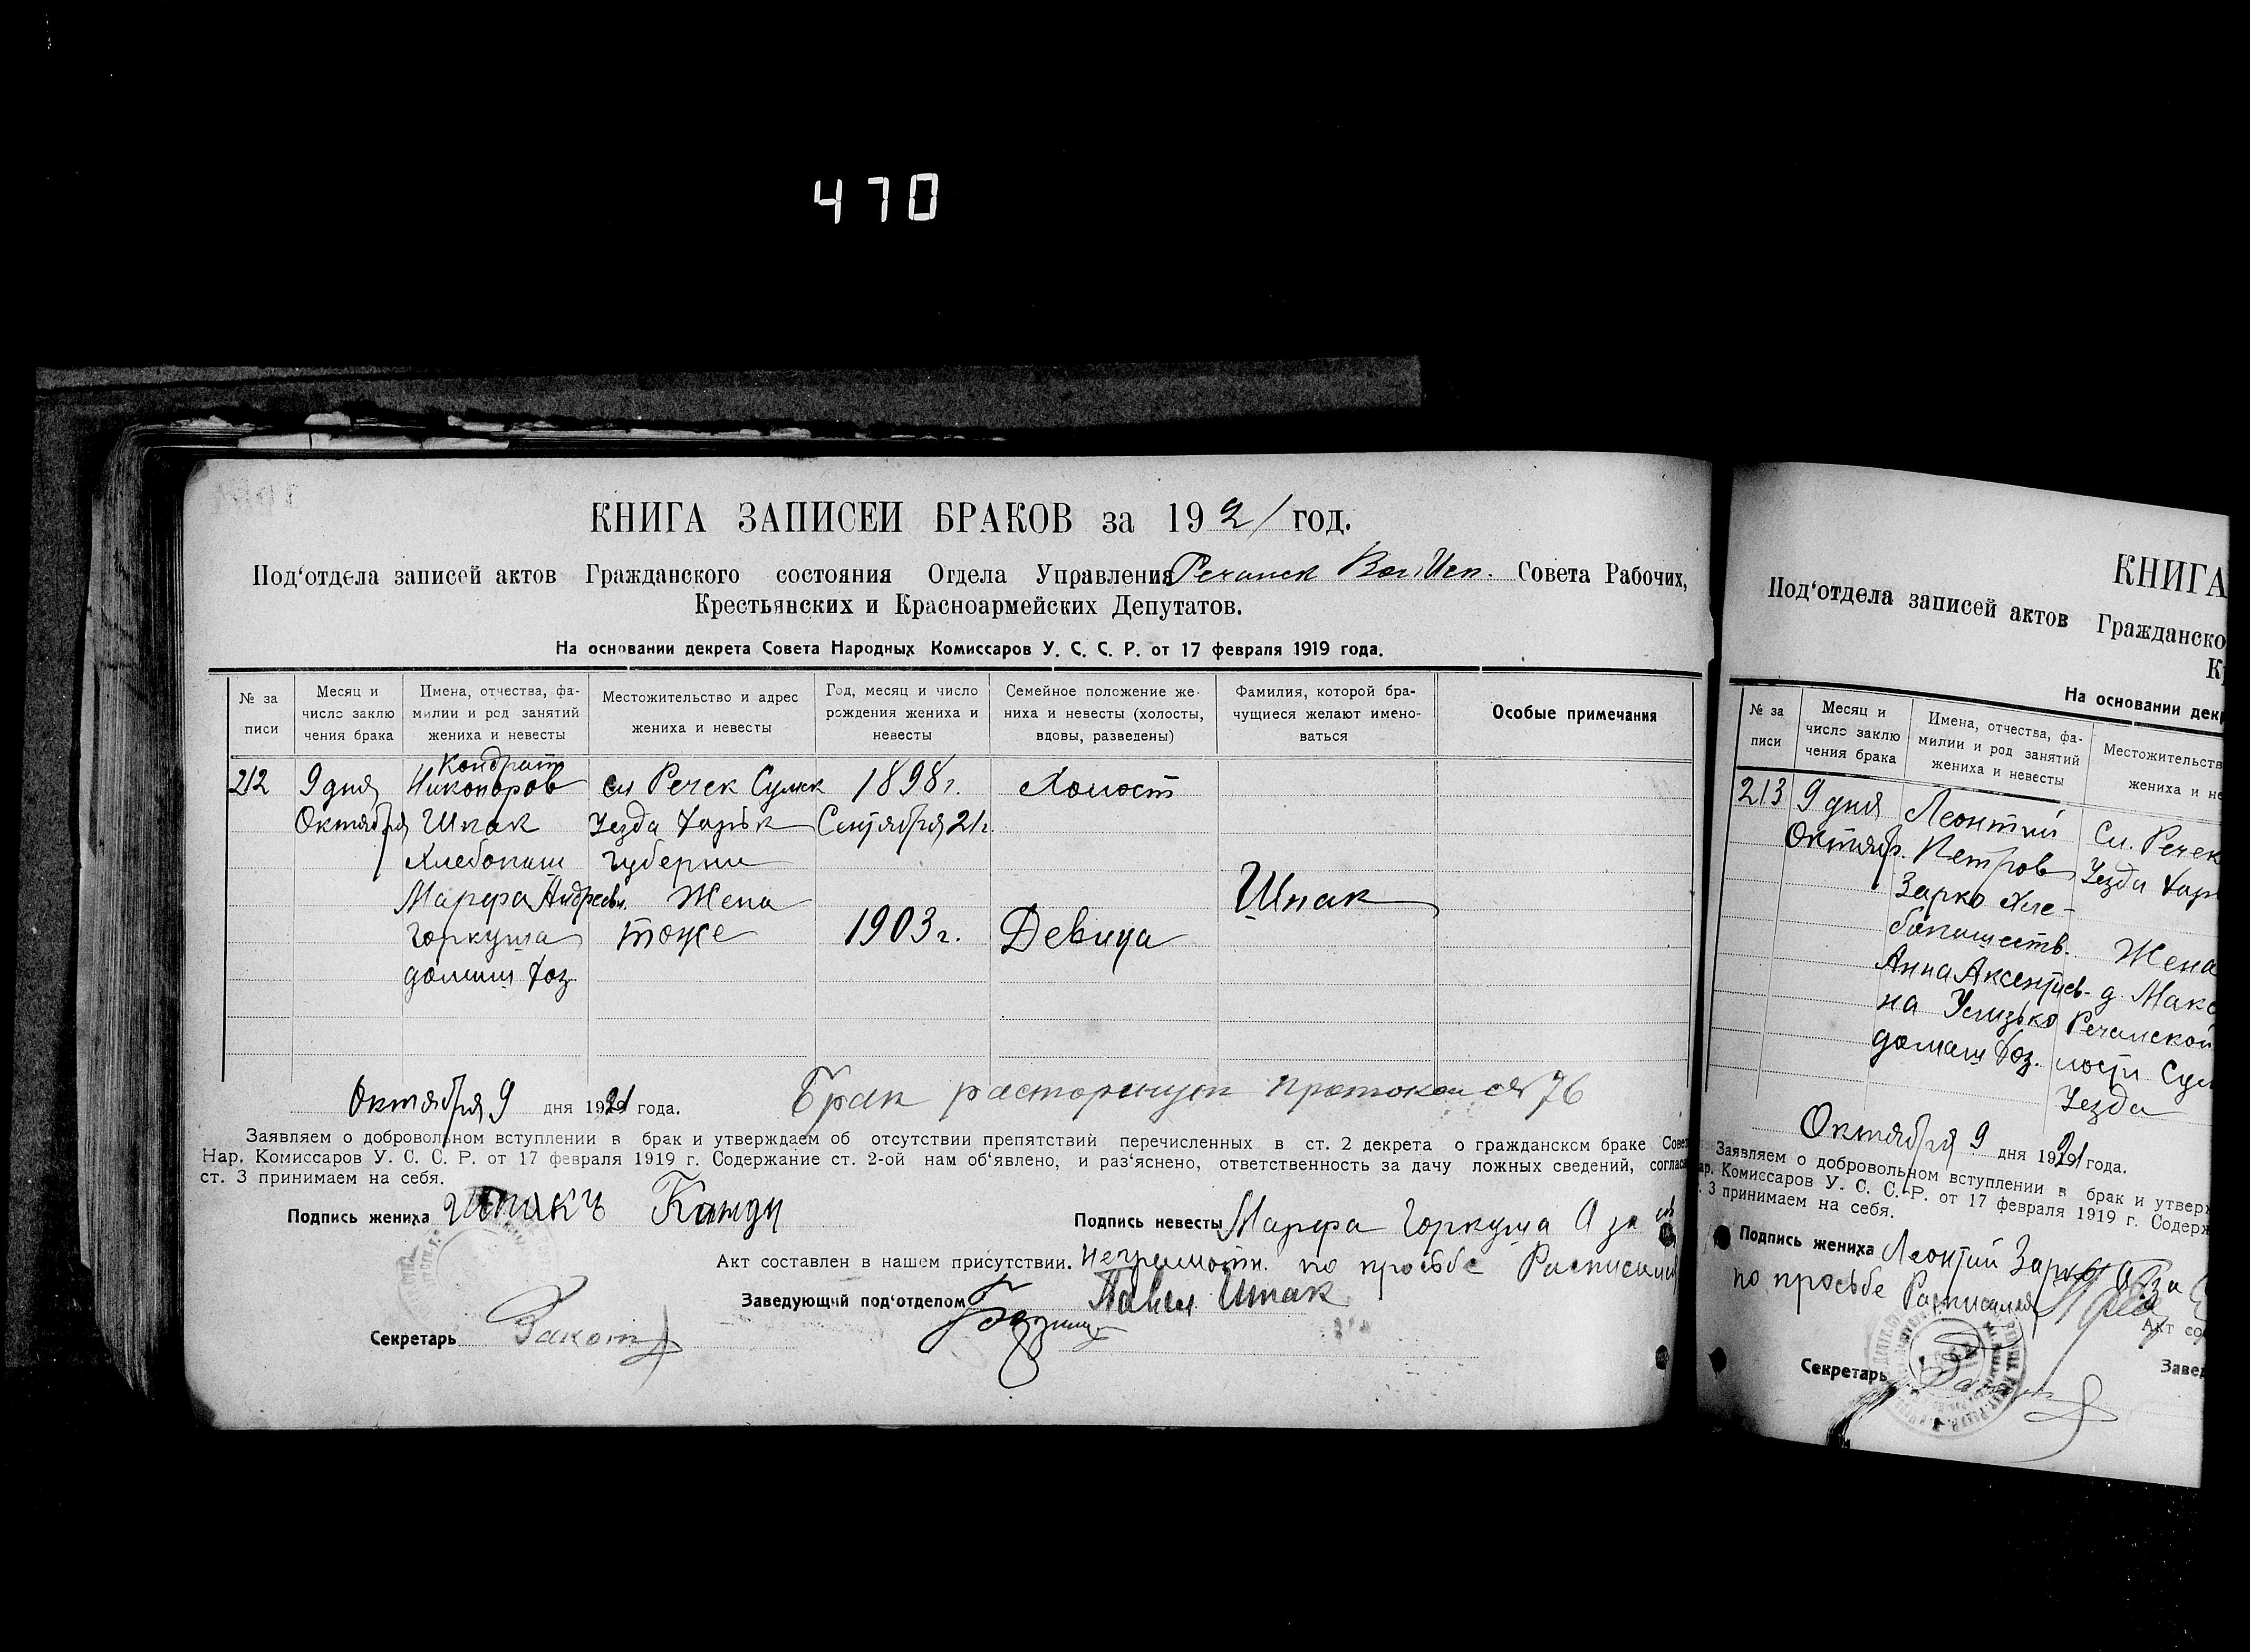 470
КНИГА ЗАПИСЕЙ БРАКОВ за 1921 год.
Под‘отдела записей актов Гражданского состояния Отдела Управления Речанск Вол. Исп. Совета Рабочих,
Крестьянских и Красноармейских Депутатов.
На основании декрета Совета Народных Комиссаров У. С. С. Р. от 17 февраля 1919 года.
№ за писи
Месяц и число заклю чения брака
Имена, отчества, фа- милии и род занятий жениха и невесты
Местожительство и адрес жениха и невесты
Год, месяц и число рождения жениха и невесты
Семейное положение же- ниха и невесты (холосты, вдовы, разведены)
Фамилия, которой бра- чущиеся желают имено- ваться
Особые примечания
Кондрат
212 9 дня Никоноров сл Речек Сумск 1898 г. Холост
Октября Шпак Уезда Харьк Сентября 21 г.
Хлебопаш губерни
Марфа Андреевн. Жена Шпак
Горкуша тоже 1903 г. Девица
домаш хоз.
Октября 9 дня 1921 года. Брак расторгнут протокол № 76
Заявляем о добровольном вступлении в брак и утверждаем об отсутствии препятствий перечисленных в ст. 2 декрета о гражданском браке Совет
Нар. Комиссаров У. С. С. Р. от 17 февраля 1919 г. Содержание ст. 2-ой нам об‘явлено, и раз‘яснено, ответственность за дачу ложных сведений, соглас
ст. 3 принимаем на себя.
Подпись жениха Шпакъ Подпись невесты Марфа Горкуша А за
Акт составлен в нашем присутствии. неграмотн. по просьбе Расписался
Заведующий под‘отделом Павел Шпак
Секретарь
КНИГА
Под‘отдела записей актов Гражданско
К
На основании дек
№ за писи
Месяц и число заклю чения брака
Имена, отчества, фа- милии и род занятий жениха и невесты
Местожительств жениха и не
213 9 дня Леонтий Сл. Речек
Октябр. Петров Уезда Харь
Зарко Хле-
бопашеств. Жена
Анна Аксентьев- д. Мак
на Речанской
домаш хоз. лости Сум
Уезда
Октября 9 дня 1921 года.
Заявляем о добровольном вступлении в брак и утвер
ар. Комиссаров У. С. С. Р. от 17 февраля 1919 г. Содерж
. 3 принимаем на себя.
Подпись жениха Леонтий Зарко А за
по просьбе Расписался
Акт со
Секретарь Завед